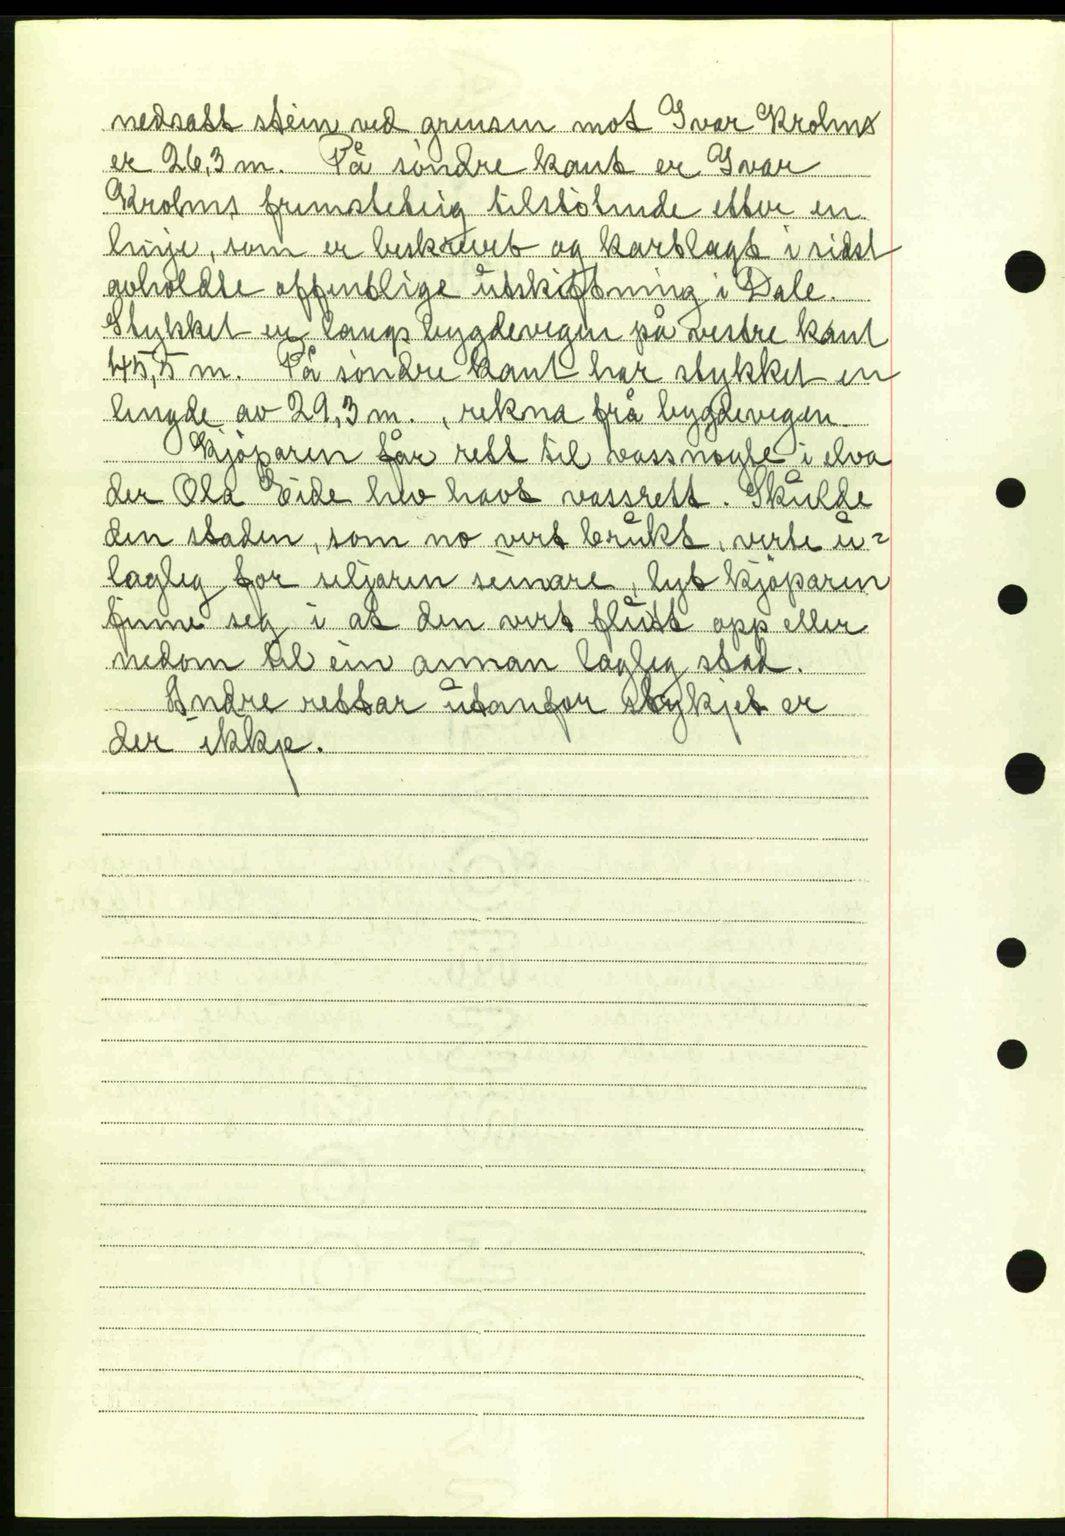 nedsatt stein ved grensen mot Ivar Krohns
er 26,3 m. På söndre kant er Ivar
Krohns fremsteteig tilstötende etter en
linje, som er beskrevet og kartlagt i sidst
avholdte offentlige utskiftning i Dale.
Stykket er langs bygdevegen på vestre kant
45,5 m. På söndre kant har stykket en
lengde av 29,3 m., rekna frå bygdevegen.
Kjöparen får rett til vassnøyte i elva
der Ola Eide hev havt vassrett. Skulde
den staden, som no vert brukt, verte u=
lagleg for seljaren seinare, lyt kjöparen
finne seg i at den vert flutt opp eller
nedom til ein annan lagleg stad.
Andre rettar utanfor stykjet er
der ikkje.